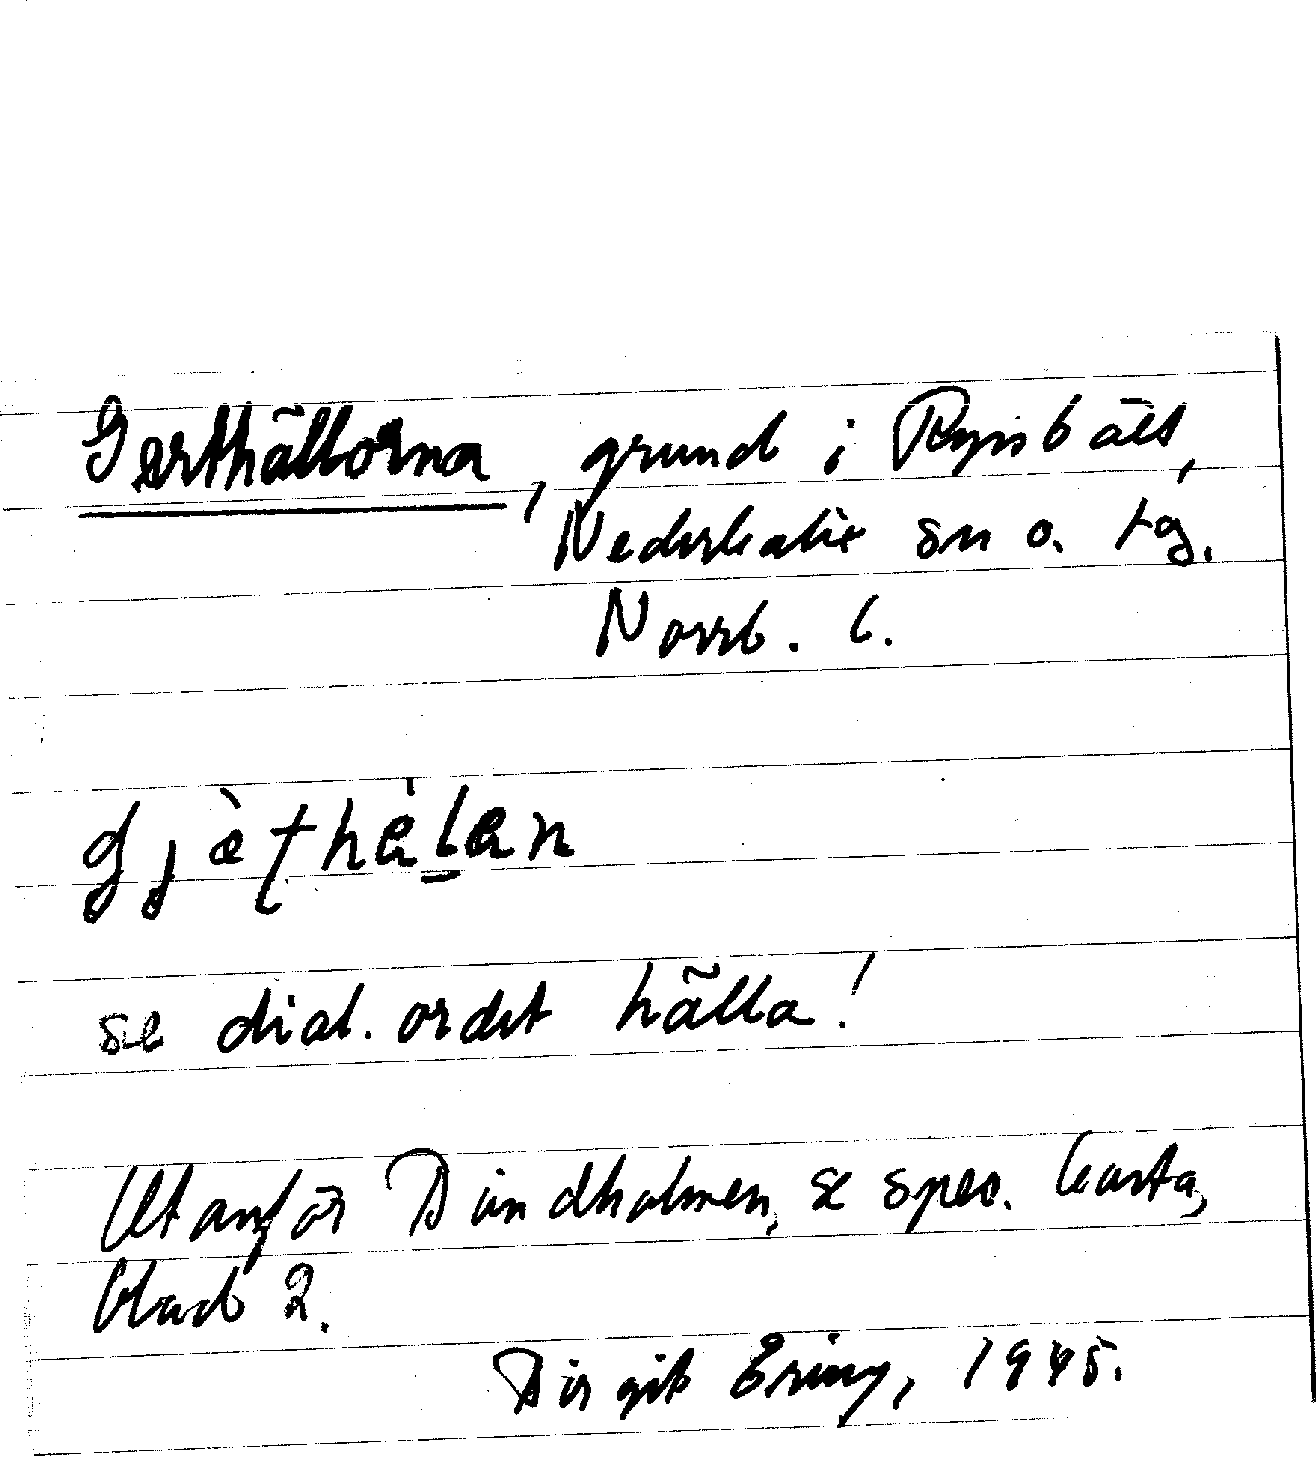 Gerthällorna, grund i Rysbält,
Nederkalix sn o. tg.
Norrb. l.
gjèthèlen
se dial. ordet hälla!
Utanför Bondholmen, se spec. karta,
blad 2.
Birgit Ering, 1945.